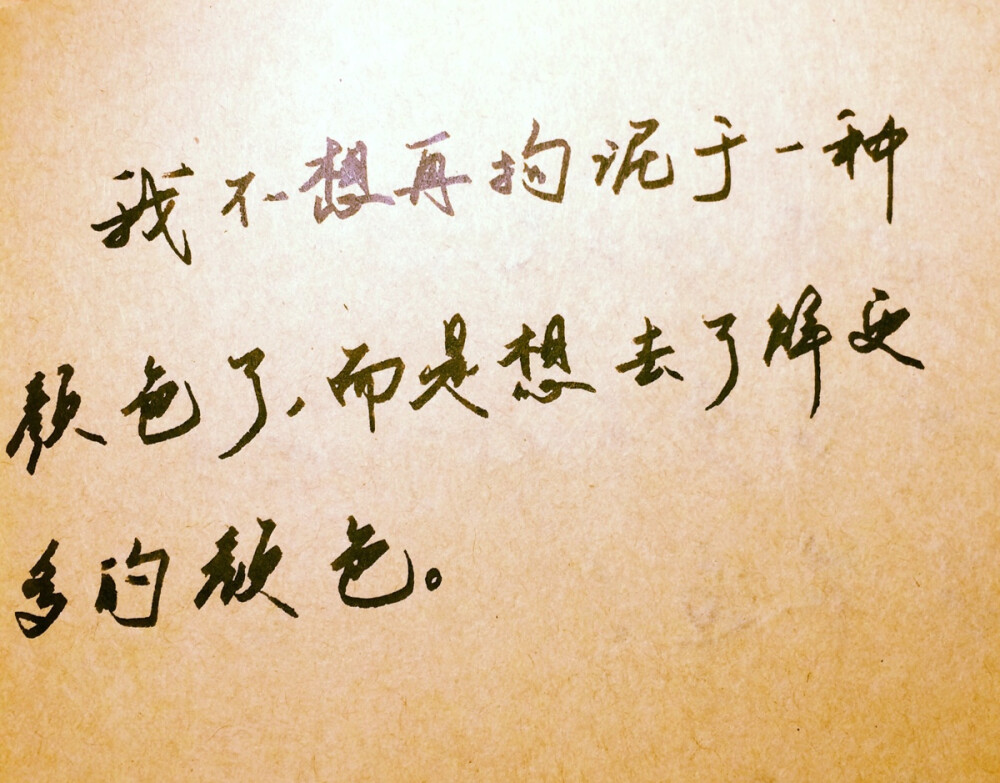 我不想再拘泥于一种
颜色了,而是想去了解更
多的颜色。